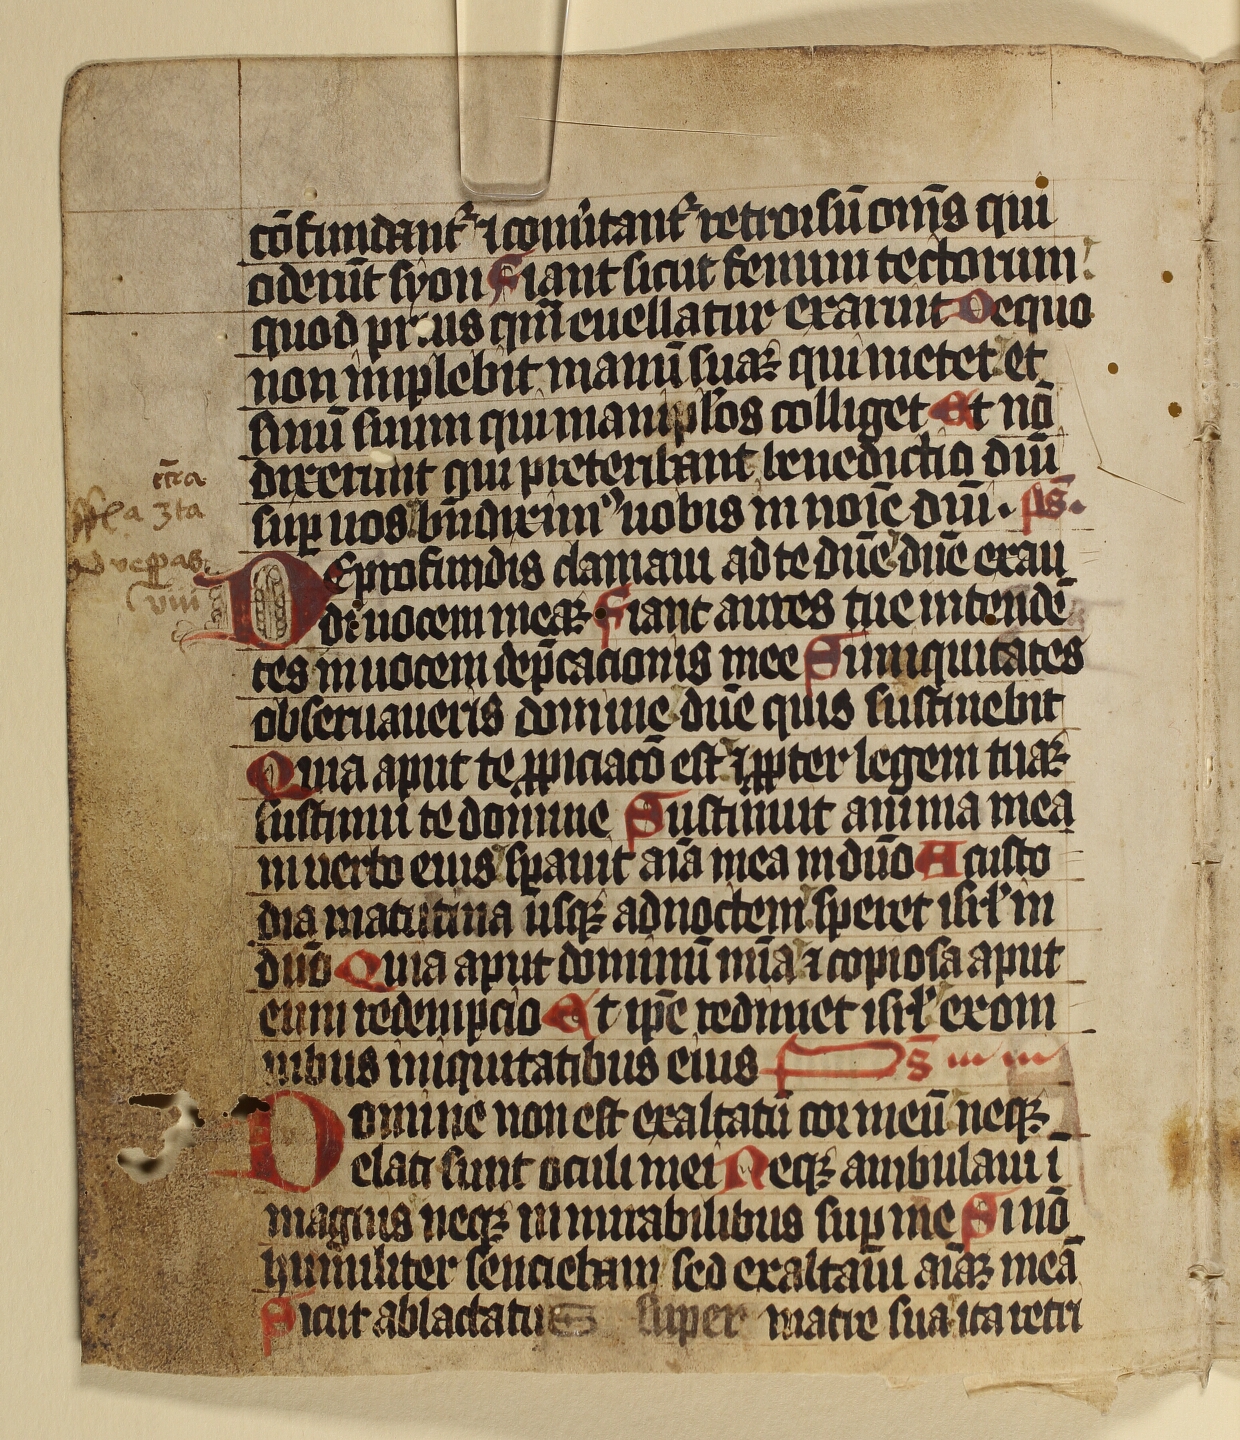 cōfundant᷑ ⁊ conũtant᷑ retrorsū om̄s qui
oderūt syon Fiant sicut fenum tectorum
quod prius qm̄ euellatur exaruit De quo
non implebit manū suaꝫ qui metet et
sinū suum qui manipl̓os colliget Et nō
dixerunt qui preteribant benedictio dn̄i
suꝑ uos bn̄diximꝰ uobis in noīe dn̄i · ps̄ ·
ctīca
ffͤl a 3ta
ad veꝑas
viii
De profundis clamaui ad te dn̄e dn̄e exau
di uocem meaꝫ Fiant aures tue intendē
tes in uocem dep̄cacionis mee Si iniquitates
obseruaueris domine dn̄e quis sustinebit
Quia aput te ꝓpiciacō est ⁊ ꝓpter legem tuaꝫ
sustinui te domine Sustinuit anima mea
in uerbo eius sꝑauit aīa mea in dn̄o A custo
dia matutina usqꝫ ad noctem speret isrl̓ in
dn̄o Quia aput dominū mīa ⁊ copiosa aput
eum redempcio Et ip̄e redimet isrl̓ ex om
nibus iniquitatibus eius Ps̄
Domine non est exaltatū cor meū neqꝫ
elati sunt oculi mei Neqꝫ ambulaui ī
magnis neqꝫ in mirabilibus suꝑ me Si nō
humiliter senciebam sed exaltaui aīaꝫ meā
Sicut ablactatus super matre sua ita retri